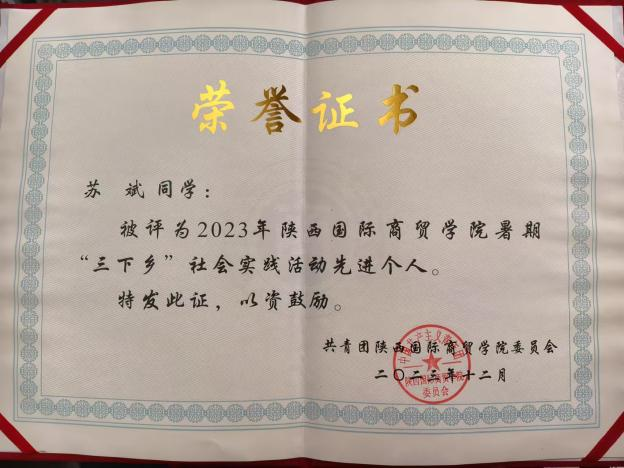 荣誉证书
苏 斌 同学：
被评为2023年陕西国际商贸学院暑期
“三下乡”社会实践活动先进个人。
特发此证，以资鼓励。
共青团陕西国际商贸学院委员会
二〇二三年十二月
中国共产主义青年团
陕西国际商贸学院
委员会